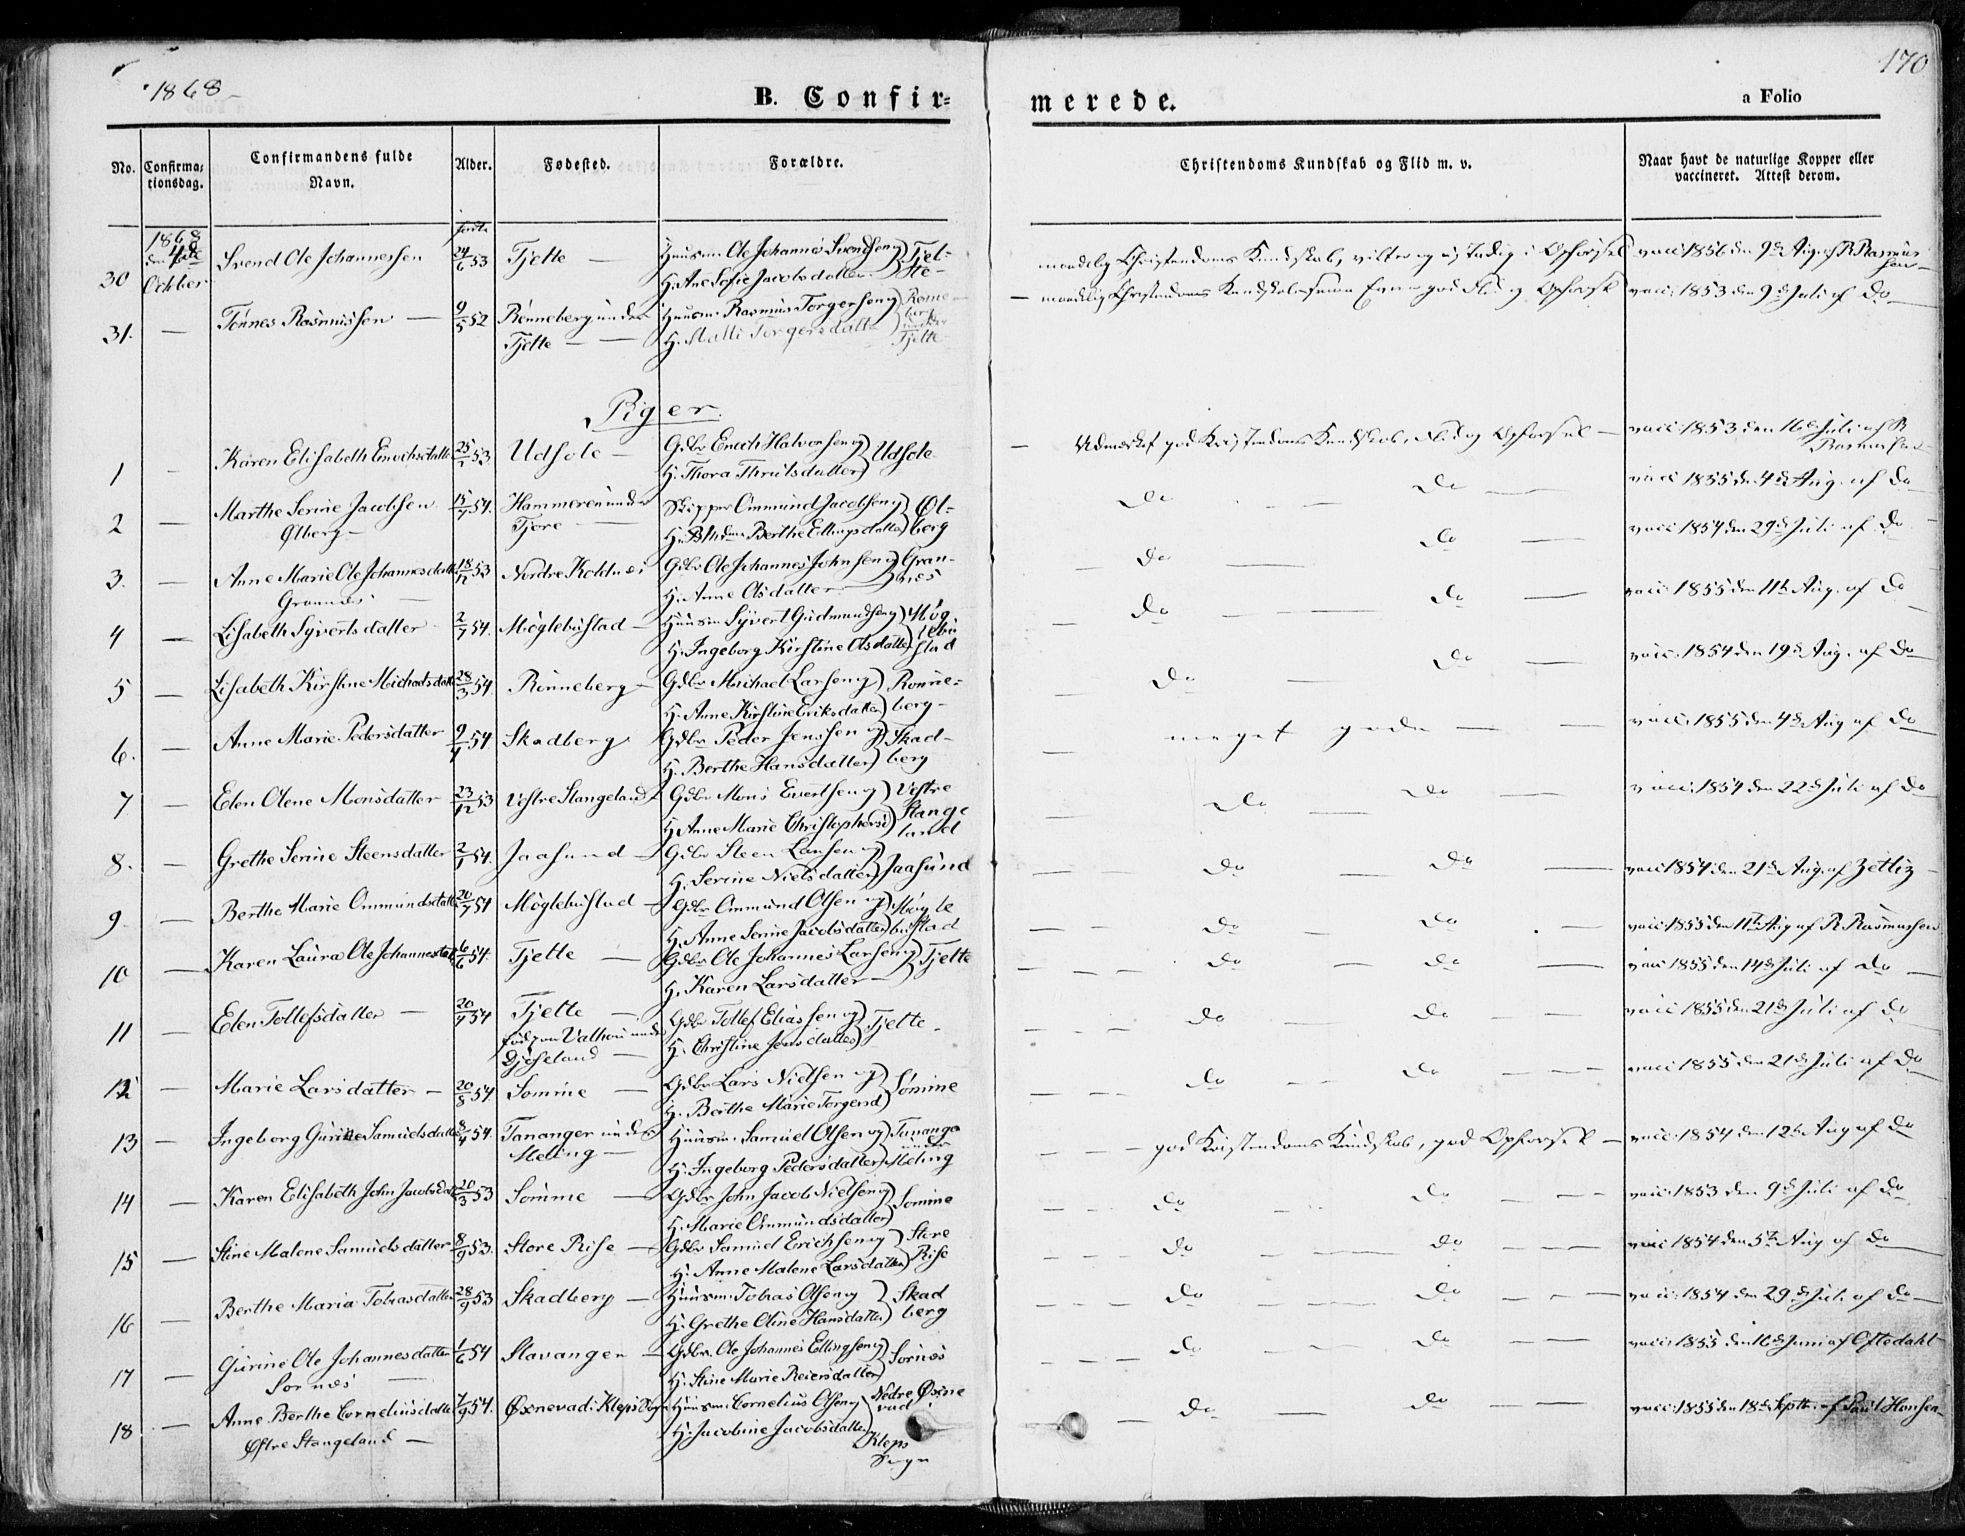 170
1868
B. Confir=
merede.
a Folio
No.
Confirma=
tionsdag.
Confirmandens fulde
Navn.
Alder.
Fødested.
Forældre.
Christendoms Kundskab og Flid m. v.
Naar havt de naturlige Kopper eller
vaccineret. Attest derom.
født
1868
den 4de
October
30 Svend Ole Johannessen 24/6 53 Tjelte — Huusm. Ole Johannes Svendsen og H. Ane Sofie Jacobsdatter Tjel-te — Christendoms Kundskab, Opførsel vacc: 1856 den 9de Aug. af R Rasmussen
31. — Tønnes Rasmussen — 9/5 52 Rønneberg under Tjelte — Huusm. Rasmus Torgersen og H. Malli Torgersdatter Rønneberg under Tjelte — maadelig Christendoms Kundskab god Flid og Opførsel vacc: 1853 den 9de Juli af do
Piger.
1 — Karen Elisabeth Enochsdatter 25/1 53 Udsole — Gdbr Enoch Halvorsen og H. Thora Thrulsdatter Udsole — Udmærket god Kristendoms Kundskab, Flid og Opførsel — vacc: 1853 den 16de Juli af R Rasmussen
2 — Marthe Serine Jacobsen Ølberg — 15/7 54. Hammeren under Tjore — Skipper Ommund Jacobsen og H. Berthe Ellingsdatter Øl-berg do — do — vacc 1855 den 4de Aug. af do
3. — Anne Marie Ole Johannesdatter Grannæs — 18/12 53 Nordre Kolnæs Gdbr Ole Johannes Johnsen og H. Anne Olsdatter Gran-næs — do — do — vacc 1854 den 29de Juli af do
4 — Lisabeth Syvertsdatter 2/7 54. Møglebustad — Huusm Syvert Gudmundsen og H. Ingeborg Kirstine Olsdatter Møg-lebu-stad — do — do — vacc: 1855 den 11te Aug. af do
5 — Lisabeth Kirstine Michaelsdatter 28/3 54 Rønneberg — Gdbr Michael Larsen og H. Anne Kirstine Eriksdatter Rønne-berg — do — do — vacc: 1854 den 19de Aug. af do
6. — Anne Marie Pedersdatter 9/4 54 Skadberg Gdbr Peder Jenssen og H. Berthe Hansdatter Skad-berg — meget gode — vacc: 1855 den 4de Aug af do
7 — Elen Olene Monsdatter 23/12 53 Vestre Stangeland Gdbr Mons Evertsen og H. Anne Marie Christophersd Vestre Stangeland do — do — vacc: 1854 den 22de Juli af do
8. — Grethe Serine Steensdatter 2/1 54. Jaasund — Gdbr Steen Larsen og H. Serine Nielsdatter Jaasund — do — do — vacc 1854 den 21de Aug. af Zettiz
9 — Berthe Marie Ommundsdatter 20/7 54 Møglebustad — Gdbr Ommund Olsen og H. Anne Serine Jacobsdatter Møglebustad — do — do — vacc: 1855 den 11te Aug af R Rasmussen
10 — Karen Laura Ole Johannesdatter 6/6 54. Tjelte — Gdbr Ole Johannes Larsen og H. Karen Larsdatter — Tjelte — do — do — vacc 1855 den 14de Juli af do
11 — Elen Tollefsdatter — 20/4 54 Tjelte — Gjøseland — Gdbr Tollef Eliassen og H. Christine Jensdatter Tjelte — do — do — vacc: 1855 den 21de Juli af do
12 — Marie Larsdatter — 20/8 54 Sømme — Gdbr Lars Nielsen og H. Berthe Marie Torgersd Sømme — do — do — vacc: 1855 den 21de Juli af do
13 — Ingeborg Gurine Samuelsdatter 8/4 54. Tananger under Meling — Huusm Samuel Olsen og H. Ingeborg Pedersdatter Tananger under Meling — god Kristendoms Kundskab, god Opførsel — vacc: 1854 den 12te Aug af do
14 — Karen Elisabeth John Jacobsdatter 20/3 53 Sømme — Gdbr John Jacob Nielsen og H. Marie Ommundsdatter Sømme — do — do — vacc: 1853 den 9de Juli af do
15 — Stine Malene Samuelsdatter 8/9 53. Store Rise — Gdbr Samuel Erichsen og H. Anne Malene Larsdatter Store Rise — do — do — vacc 1854 den 5te Aug. af do
16 — Berthe Maria Tobiasdatter 28/9 53 Skadberg — Huusm. Tobias Olsen og H. Grethe Oline Hansdatter Skad berg — do — do — vacc: 1854 den 29de Juli af do
17 — Gurine Ole Johannesdatter Sørnæs — 1/6 54 Stavanger — Gdbr. Ole Johannes Ellingsen og H. Stine Marie Reiersdatter Sørnæs — do — do — vacc: 1855 den 16de Juni af Oftedahl
18 — Anne Berthe Corneliusdatter Østre Stangeland — 7/9 54. Øxnevad i Kleps Sogn Huusm. Cornelius Olsen og H. Jacobine Jacobsdatter Nedre Øxnevad Kleps Sogn — do — do — vacc: 1855 den 18de Septbr. af Paul Hansen